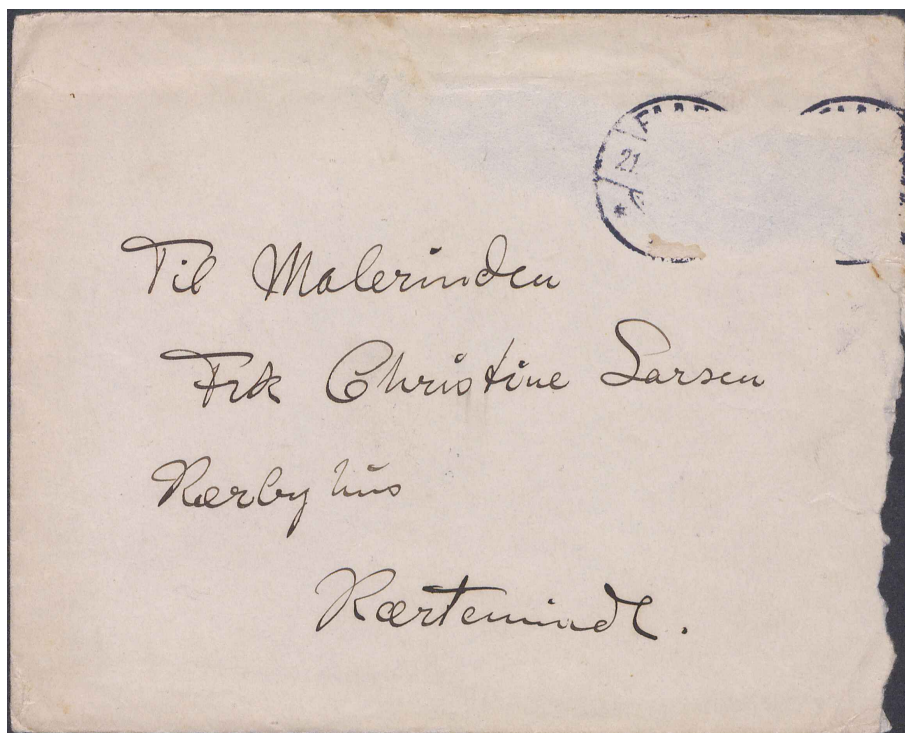 21
Til Malerinden
Frk Christine Larsen
Kærbyhus
Kærteminde.